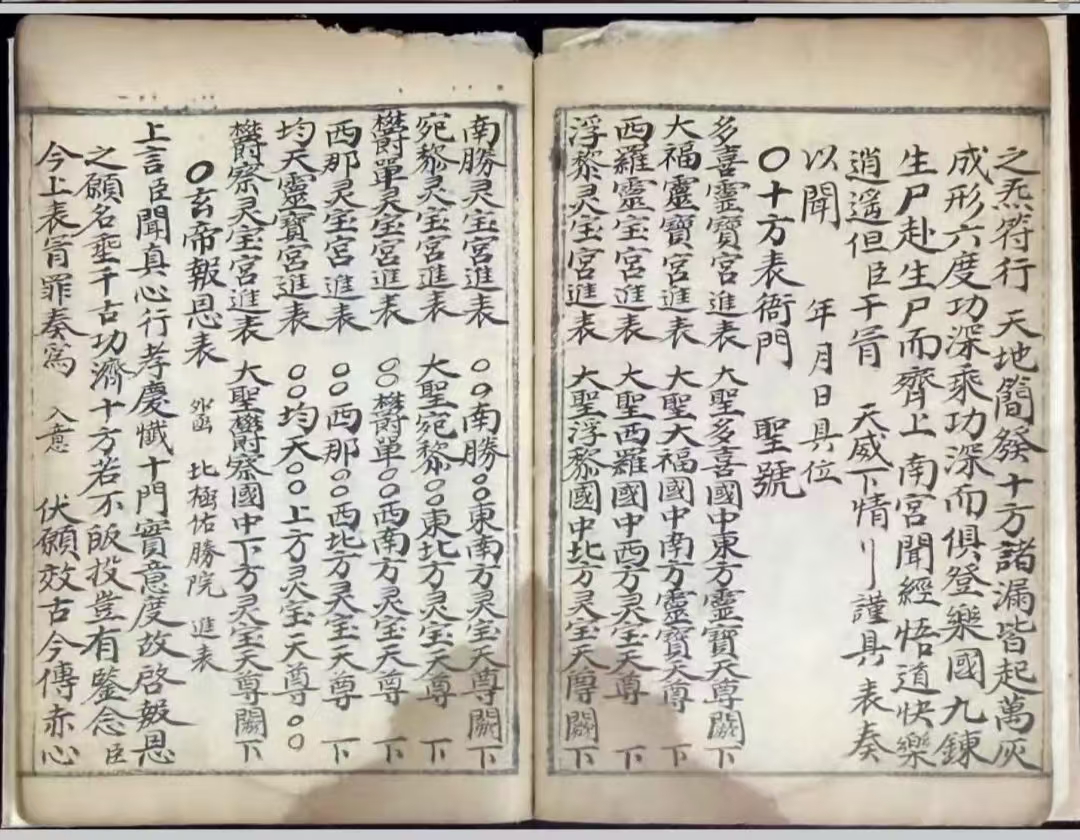 之炁符行 天地簡發十方諸漏皆起萬灰
成形六度功深乘功深而俱登樂國九鍊
生尸赴生尸而齊上 南宮聞經悟道快樂
逍遙但臣干冒 天威下情〢謹具 表奏
以聞 年月日具位
〇十方表衙門 聖號
多喜靈寶宮進表 大聖多喜國中東方靈寶天尊闕下
大福靈寶宮進表 大聖大福國中南方靈寶天尊 下
西羅靈宝宮進表 大聖西羅國中西方灵宝天尊 下
浮黎灵宝宮進表 大聖浮黎國中北方灵宝天尊闕下
南勝灵宝宮進表 〇〇南勝〇〇東南方灵宝天尊闕下
宛黎灵宝宮進表 大聖宛黎〇〇東北方灵宝天尊 下
欝單灵宝宮進表 〇〇欝單〇〇西南方灵宝天尊 下
西那灵宝宮進表 〇〇西那〇〇西北方灵宝天尊 下
均天靈寶宮進表 〇〇均天〇〇上方灵宝天尊〇〇
欝察灵宝宮進表 大聖欝察國中下方灵宝天尊闕下
〇玄帝報恩表 外凾 北極佑勝院 進表
上言臣聞真心行孝慶懺十門實意度故啓報恩
之願名垂千古功濟十方若不皈投豈有鑒念臣
今上表冐罪奏為 入意 伏願效古今傳赤心